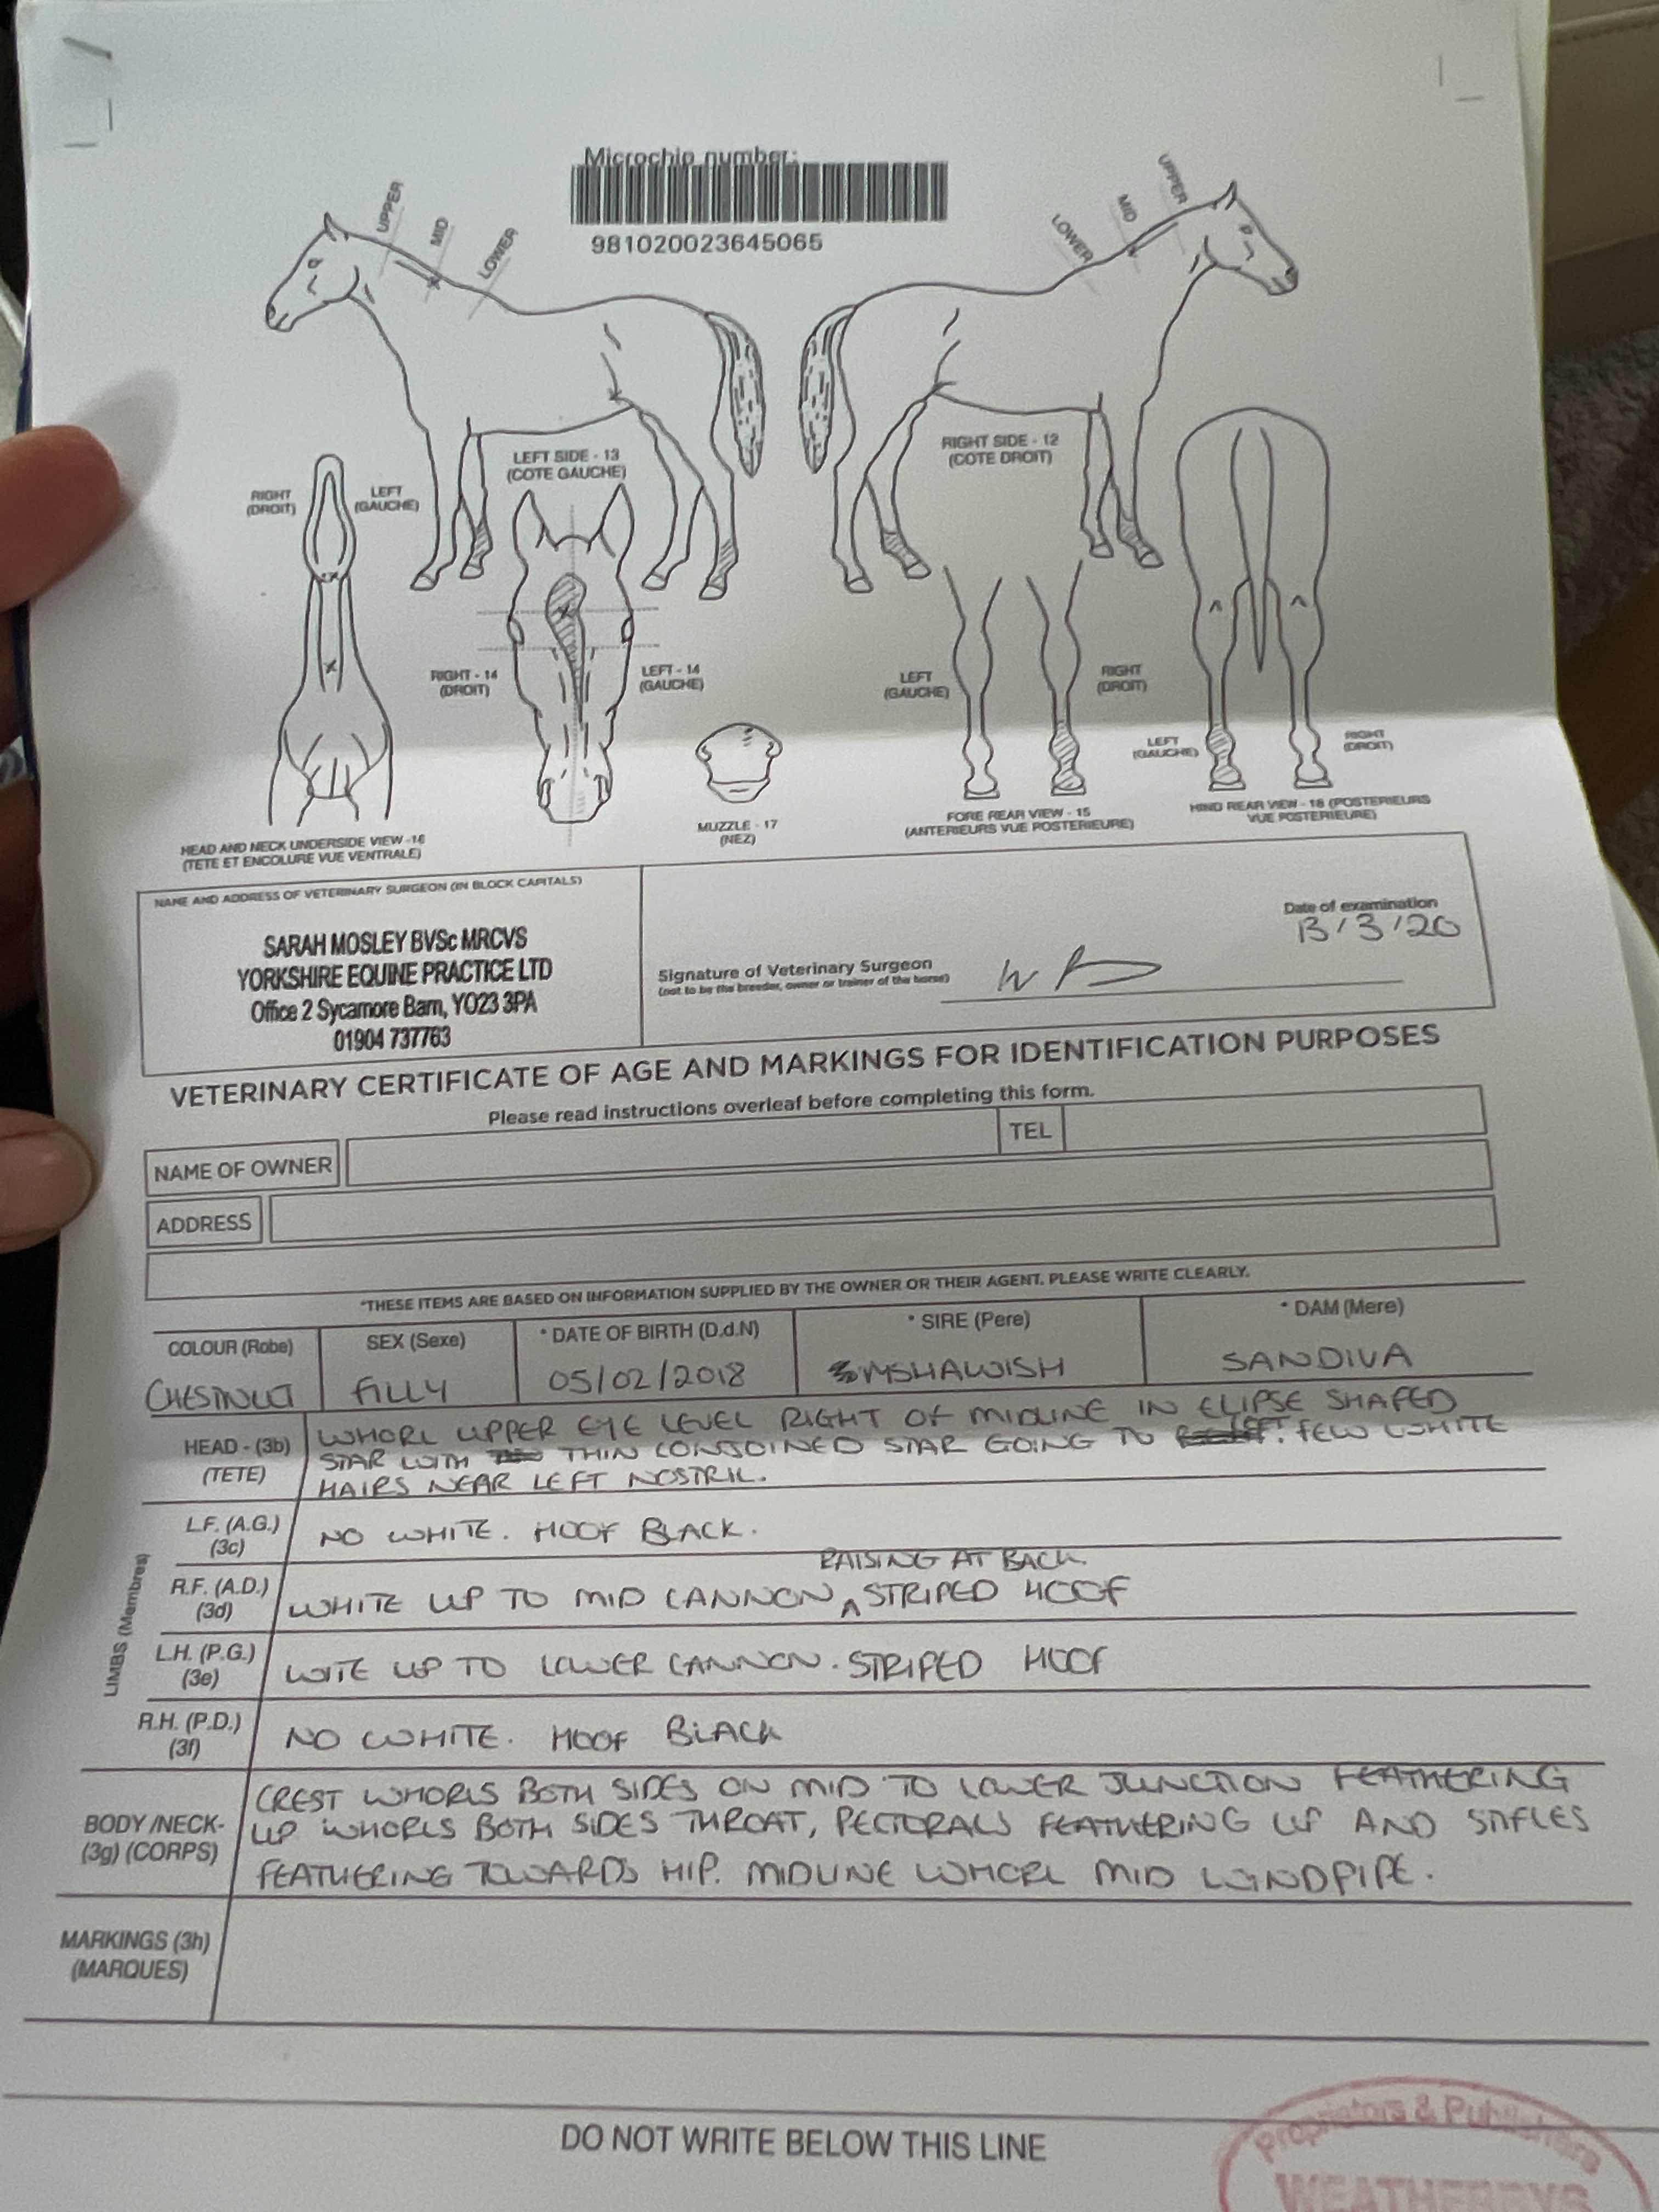 Microchip number:
981020023645065
UPPER
MID
LOWER
LOWER
MID
UPPER
LEFT SIDE - 13
(COTE GAUCHE)
RIGHT SIDE - 12
(COTE DROIT)
RIGHT
(DROIT)
LEFT
(GAUCHE)
RIGHT - 14
(DROIT)
LEFT - 14
(GAUCHE)
LEFT
(GAUCHE)
RIGHT
(DROIT)
LEFT
(GAUCHE)
RIGHT
(DROIT)
HEAD AND NECK UNDERSIDE VIEW -16
(TETE ET ENCOLURE VUE VENTRALE)
MUZZLE - 17
(NEZ)
FORE REAR VIEW - 15
(ANTERIEURS VUE POSTERIEURE)
HIND REAR VIEW - 18 (POSTERIEURS
VUE POSTERIEURE)
NAME AND ADDRESS OF VETERINARY SURGEON (IN BLOCK CAPITALS)
SARAH MOSLEY BVSc MRCVS
YORKSHIRE EQUINE PRACTICE LTD
Office 2 Sycamore Barn, YO23 3PA
01904 737763
Date of examination
13/3/20
Signature of Veterinary Surgeon
(not to be the breeder, owner or trainer of the horse)
VETERINARY CERTIFICATE OF AGE AND MARKINGS FOR IDENTIFICATION PURPOSES
Please read instructions overleaf before completing this form.
NAME OF OWNER
TEL
ADDRESS
*THESE ITEMS ARE BASED ON INFORMATION SUPPLIED BY THE OWNER OR THEIR AGENT. PLEASE WRITE CLEARLY.
COLOUR (Robe) SEX (Sexe) * DATE OF BIRTH (D.d.N) * SIRE (Pere) * DAM (Mere)
CHESTNUT FILLY 05/02/2018 MSHAWISH SANDIVA
HEAD - (3b)
(TETE)
WHORL UPPER EYE LEVEL RIGHT OF MIDLINE IN ELIPSE SHAPED
STAR WITH THIN CONJOINED STAR GOING TO LEFT. FEW WHITE
HAIRS NEAR LEFT NOSTRIL.
LIMBS (Membres)
L.F. (A.G.)
(3c)
NO WHITE. HOOF BLACK.
R.F. (A.D.)
(3d)
RAISING AT BACK
WHITE UP TO MID CANNON ^ STRIPED HOOF
L.H. (P.G.)
(3e)
WITE UP TO LOWER CANNON. STRIPED HOOF
R.H. (P.D.)
(3f)
NO WHITE. HOOF BLACK
BODY /NECK-
(3g) (CORPS)
CREST WHORLS BOTH SIDES ON MID TO LOWER JUNCTION FEATHERING
UP WHORLS BOTH SIDES THROAT, PECTORALS FEATHERING UP AND STIFLES
FEATHERING TOWARDS HIP. MIDLINE WHORL MID WINDPIPE.
MARKINGS (3h)
(MARQUES)
DO NOT WRITE BELOW THIS LINE
Proprietors & Publishers
WEATHERBYS